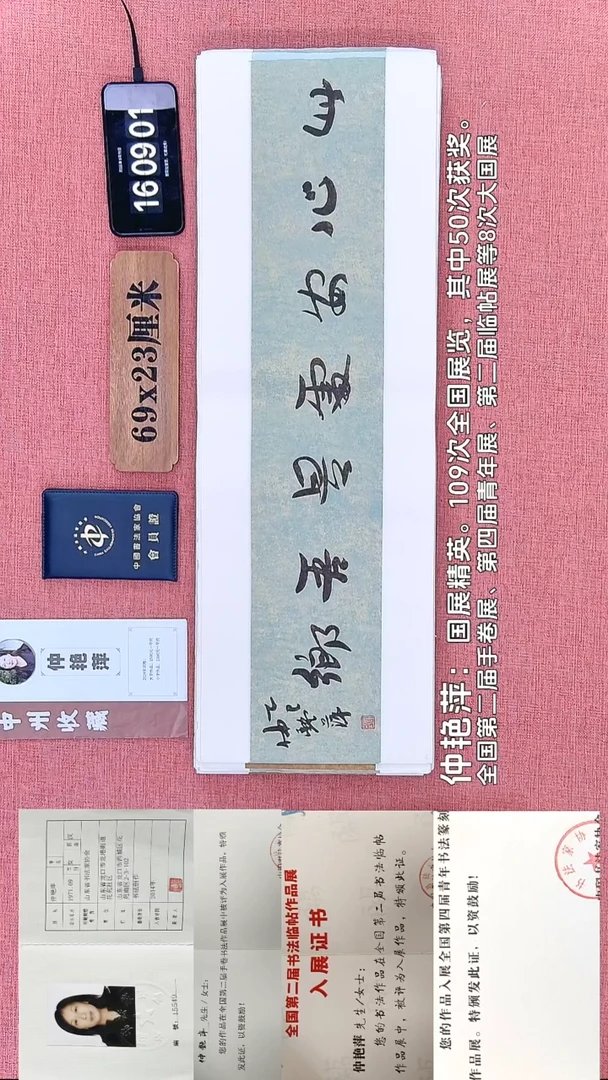 16 09 01
69x23厘米
中國書法家協會
會員證
仲艳萍
中州收藏
此心安處是吾鄉
乙巳
艷萍
仲艳萍：国展精英。109次全国展览，其中50次获奖。
全国第二届手卷展、第四届青年展、第二届临帖展等8次大国展
山东省书法家协会
仲艳萍 先生/女士：
您的作品在全国第二届手卷书法作品展中被评为入展作品，特颁
发此证，以资鼓励！
全国第二届书法临帖作品展
入展证书
仲艳萍 先生/女士：
您的书法作品在全国第二届书法临帖
作品展中，被评为入展作品，特颁此证。
您的作品入展全国第四届青年书法篆刻
作品展。特颁发此证，以资鼓励！